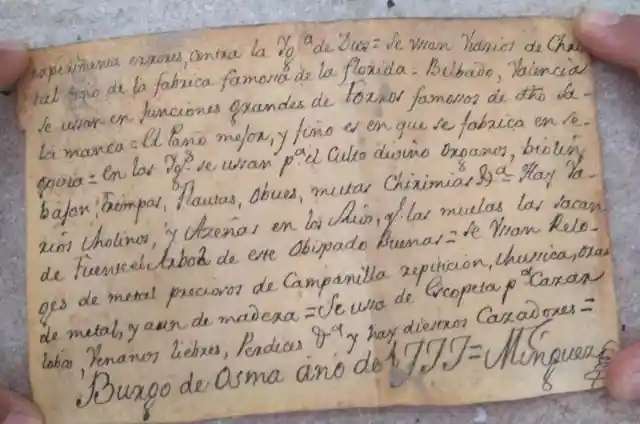 experimenta errores, contra la Yg.ª de Dios = Se vsan Vidrios de Chris
tal fino de la fabrica famosa de la florida = Bilbado, Valencia
Se ussan en funciones grandes de toxos famosos de dho Sa-
lamanca = El Paño mejor, y fino es en que se fabrica en Se-
govia = en las Ygª. se ussan pª. el Culto divino Organos, biolin
bajon, trompas, flautas, Obues, muias Chirimias &ª = Hay Va-
rios Molinos, y Azeñas en los Rios, q.ᵉ las muelas las sacan
de Fuentelarbol de este Obispado Buenas = Se Vsan Relo-
ges de metal preciosos de Campanilla repiticion, Mussica, otros
de metal, y aun de madera = Se usa de Escopeta pª Cazar
lobos, Venanos liebres, Perdices &ª y hay diestros Cazadores =
Burgo de Osma año de 1777 = Minguez